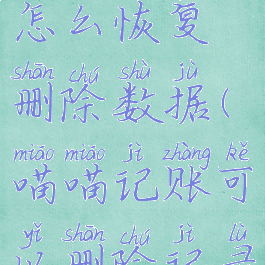 怎么恢复
shān chú shù jù
删除数据(
miāo miāo jì zhàng kě
喵喵记账可
yǐ shān chú jì lù
以删除记录